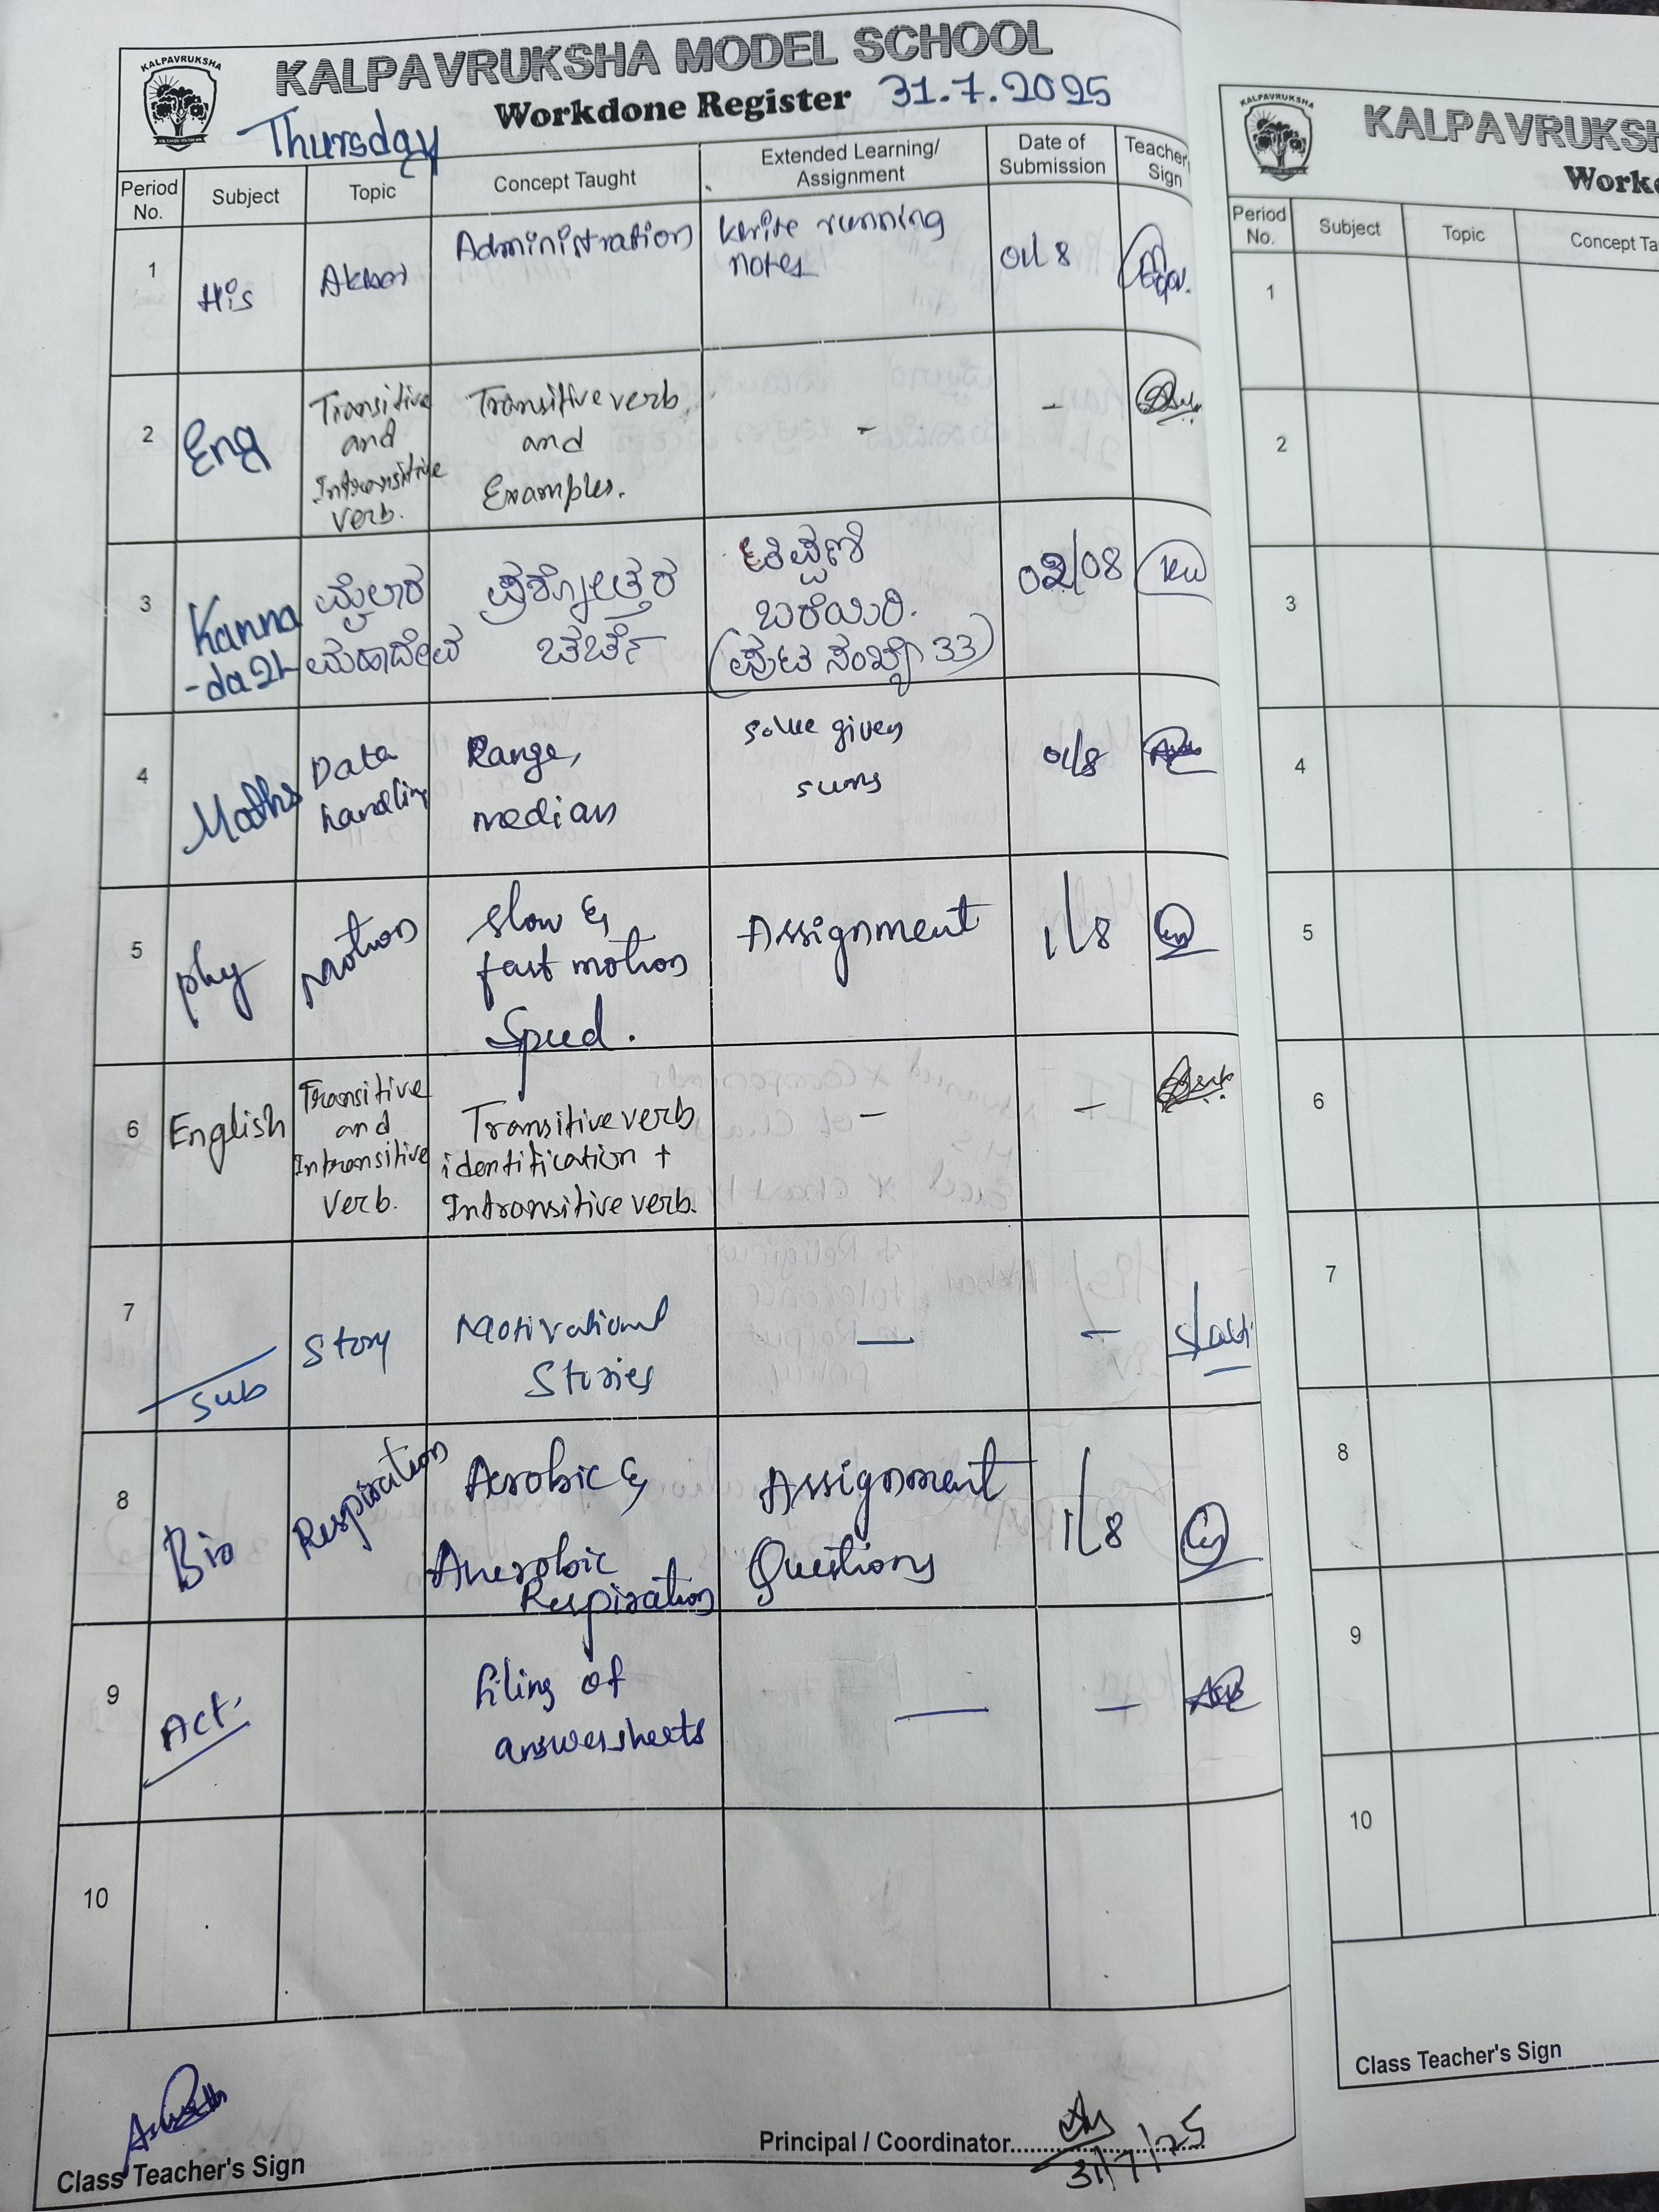 KALPAVRUKSHA
KALPAVRUKSHA MODEL SCHOOL
Workdone Register 31.7.2025
Thursday
Period No. Subject Topic Concept Taught Extended Learning/ Assignment Date of Submission Teacher Sign
1 His Akbar Administration Write running notes 01/8
2 Eng Transitive and Intransitive verb. Transitive verb and Examples. - -
3 Kanna-da 2L ಮೈಲಾರ ಮಹಾದೇವ ಪ್ರಶ್ನೋತ್ತರ ಚರ್ಚೆ ಟಿಪ್ಪಣಿ ಬರೆಯಿರಿ. (ಪುಟ ಸಂಖ್ಯೆ 33) 02/08
4 Maths Data handling Range, median solve given sums 01/8
5 phy Motion slow & fast motion Speed. Assignment 1/8
6 English Transitive and Intransitive verb. Transitive verb identification + Intransitive verb. - -
7 Sub Story Motivational Stories — -
8 Bio Respiration Aerobic & Anerobic Respiration Assignment Questions 1/8
9 Act. filing of answersheets — —
10
Class Teacher's Sign
Principal / Coordinator
31/7/25
KALPAVRUKSHA
KALPAVRUKSH
Work
Period No. Subject Topic Concept Ta
1
2
3
4
5
6
7
8
9
10
Class Teacher's Sign